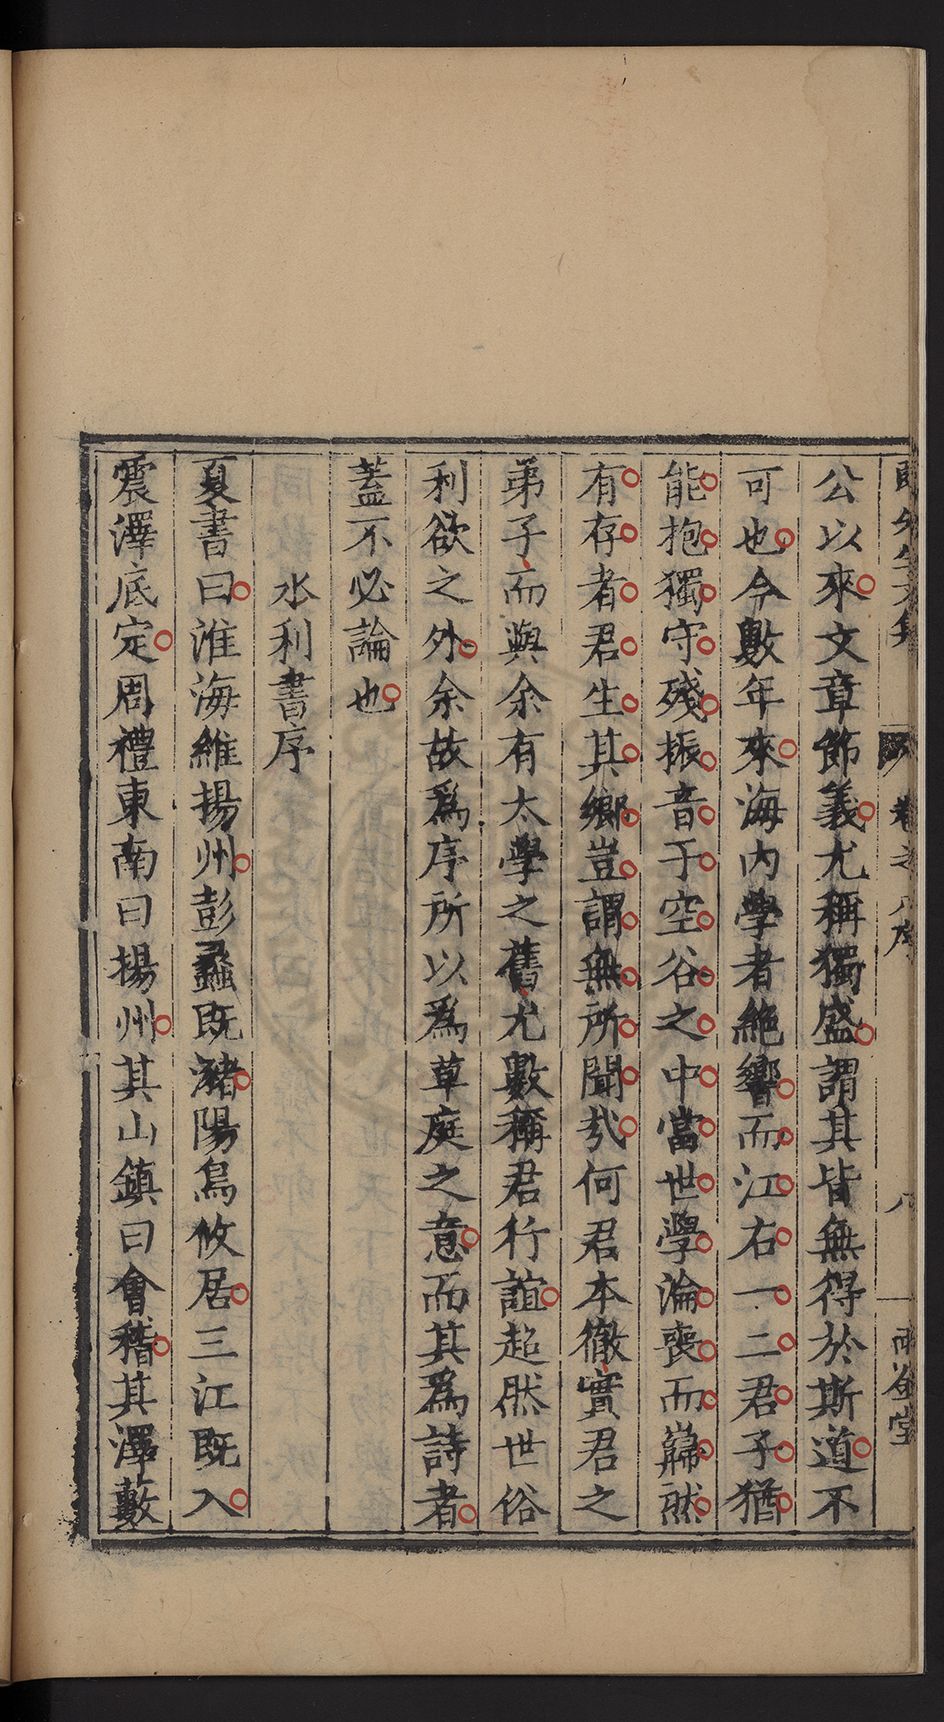 卷之八序 八 雨谷堂
公以來文章節義尤稱獨盛謂其皆無得於斯道不
可也今數年來海內學者絶響而江右一二君子猶
能抱獨守殘振音于空谷之中當世學淪喪而巋然
有存者君生其鄉豈謂無所聞哉何君本徹實君之
弟子而與余有太學之舊尤數稱君行誼超然世俗
利欲之外余故爲序所以爲草庭之意而其爲詩者
蓋不必論也
水利書序
夏書曰淮海維揚州彭蠡既瀦陽鳥攸居三江既入
震澤底定周禮東南曰揚州其山鎮曰會稽其澤藪